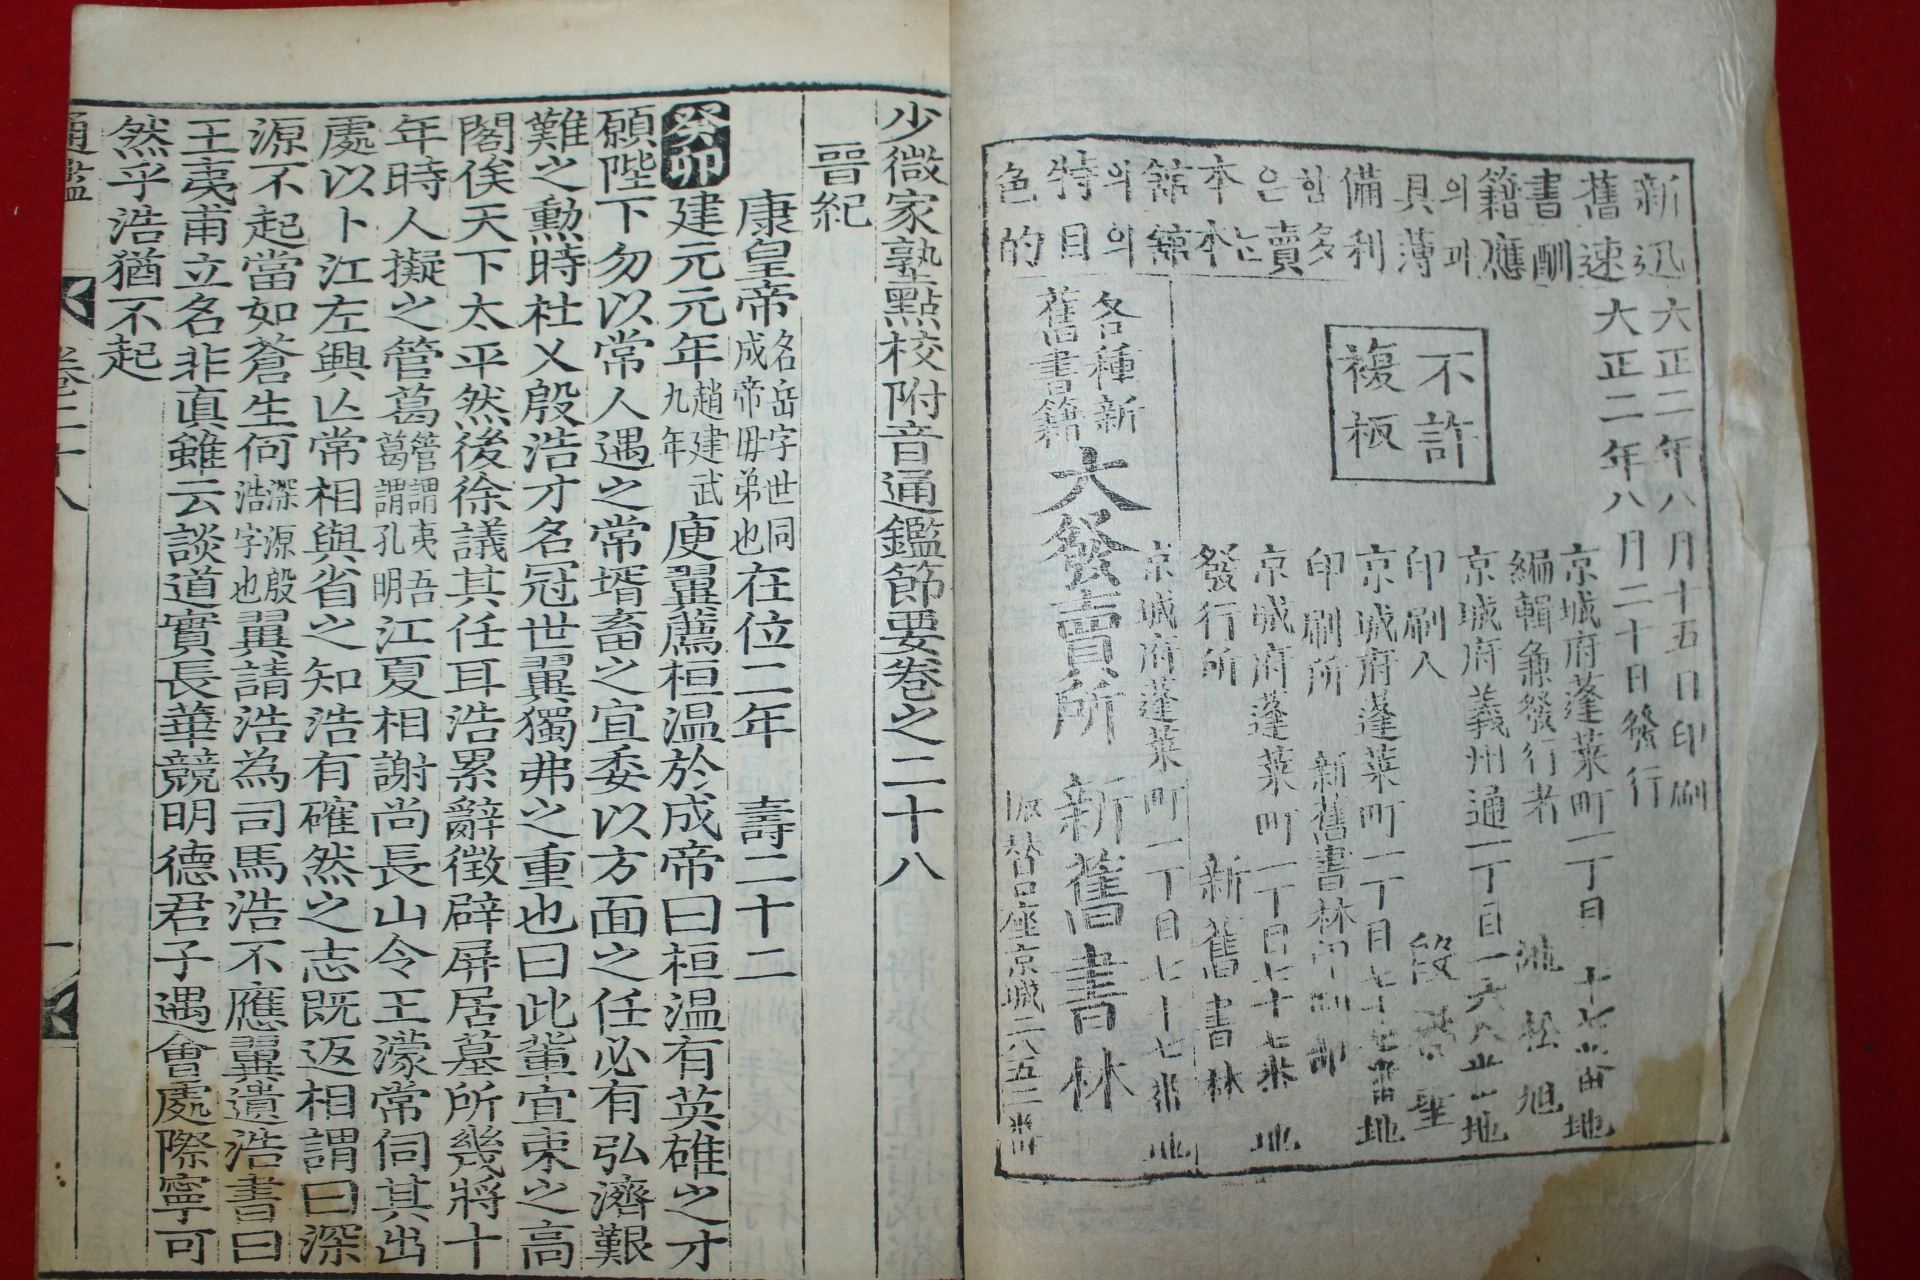 新舊書籍의具備한은本舘의特色
迅速酬應과薄利多賣는本舘의目的
大正二年八月十五日印刷
大正二年八月二十日發行
不許
複板
京城府蓬萊町一丁目七十七番地
編輯兼發行者 池松旭
京城府義州通一丁目
印刷人
京城府蓬萊町一丁目七十七番地
印刷所 新舊書林印刷部
京城府蓬萊町一丁目七十七番地
發行所 新舊書林
京城府蓬萊町一丁目七十七番地
各種新
舊書籍
大發賣所 新舊書林
振替口座京城
少微家塾點校附音通鑑節要卷之二十八
晉紀
康皇帝名岳字世同成帝毋弟也在位二年 壽二十二
癸卯建元元年趙建武九年庾翼薦桓温於成帝曰桓温有英雄之才
願陛下勿以常人遇之常壻畜之宜委以方面之任必有弘濟艱
難之勳時杜乂殷浩才名冠世翼獨弗之重也曰此輩宜束之高
閣俟天下太平然後徐議其任耳浩累辭徵辟屏居墓所幾將十
年時人擬之管葛管謂夷吾葛謂孔明江夏相謝尚長山令王濛常伺其出
處以卜江左興亾常相與省之知浩有確然之志既返相謂曰深
源不起當如蒼生何深源殷浩字也翼請浩為司馬浩不應翼遺浩書曰
王夷甫立名非眞雖云談道實長華競明德君子遇會處際寧可
然乎浩猶不起
通鑑 卷二十八 一